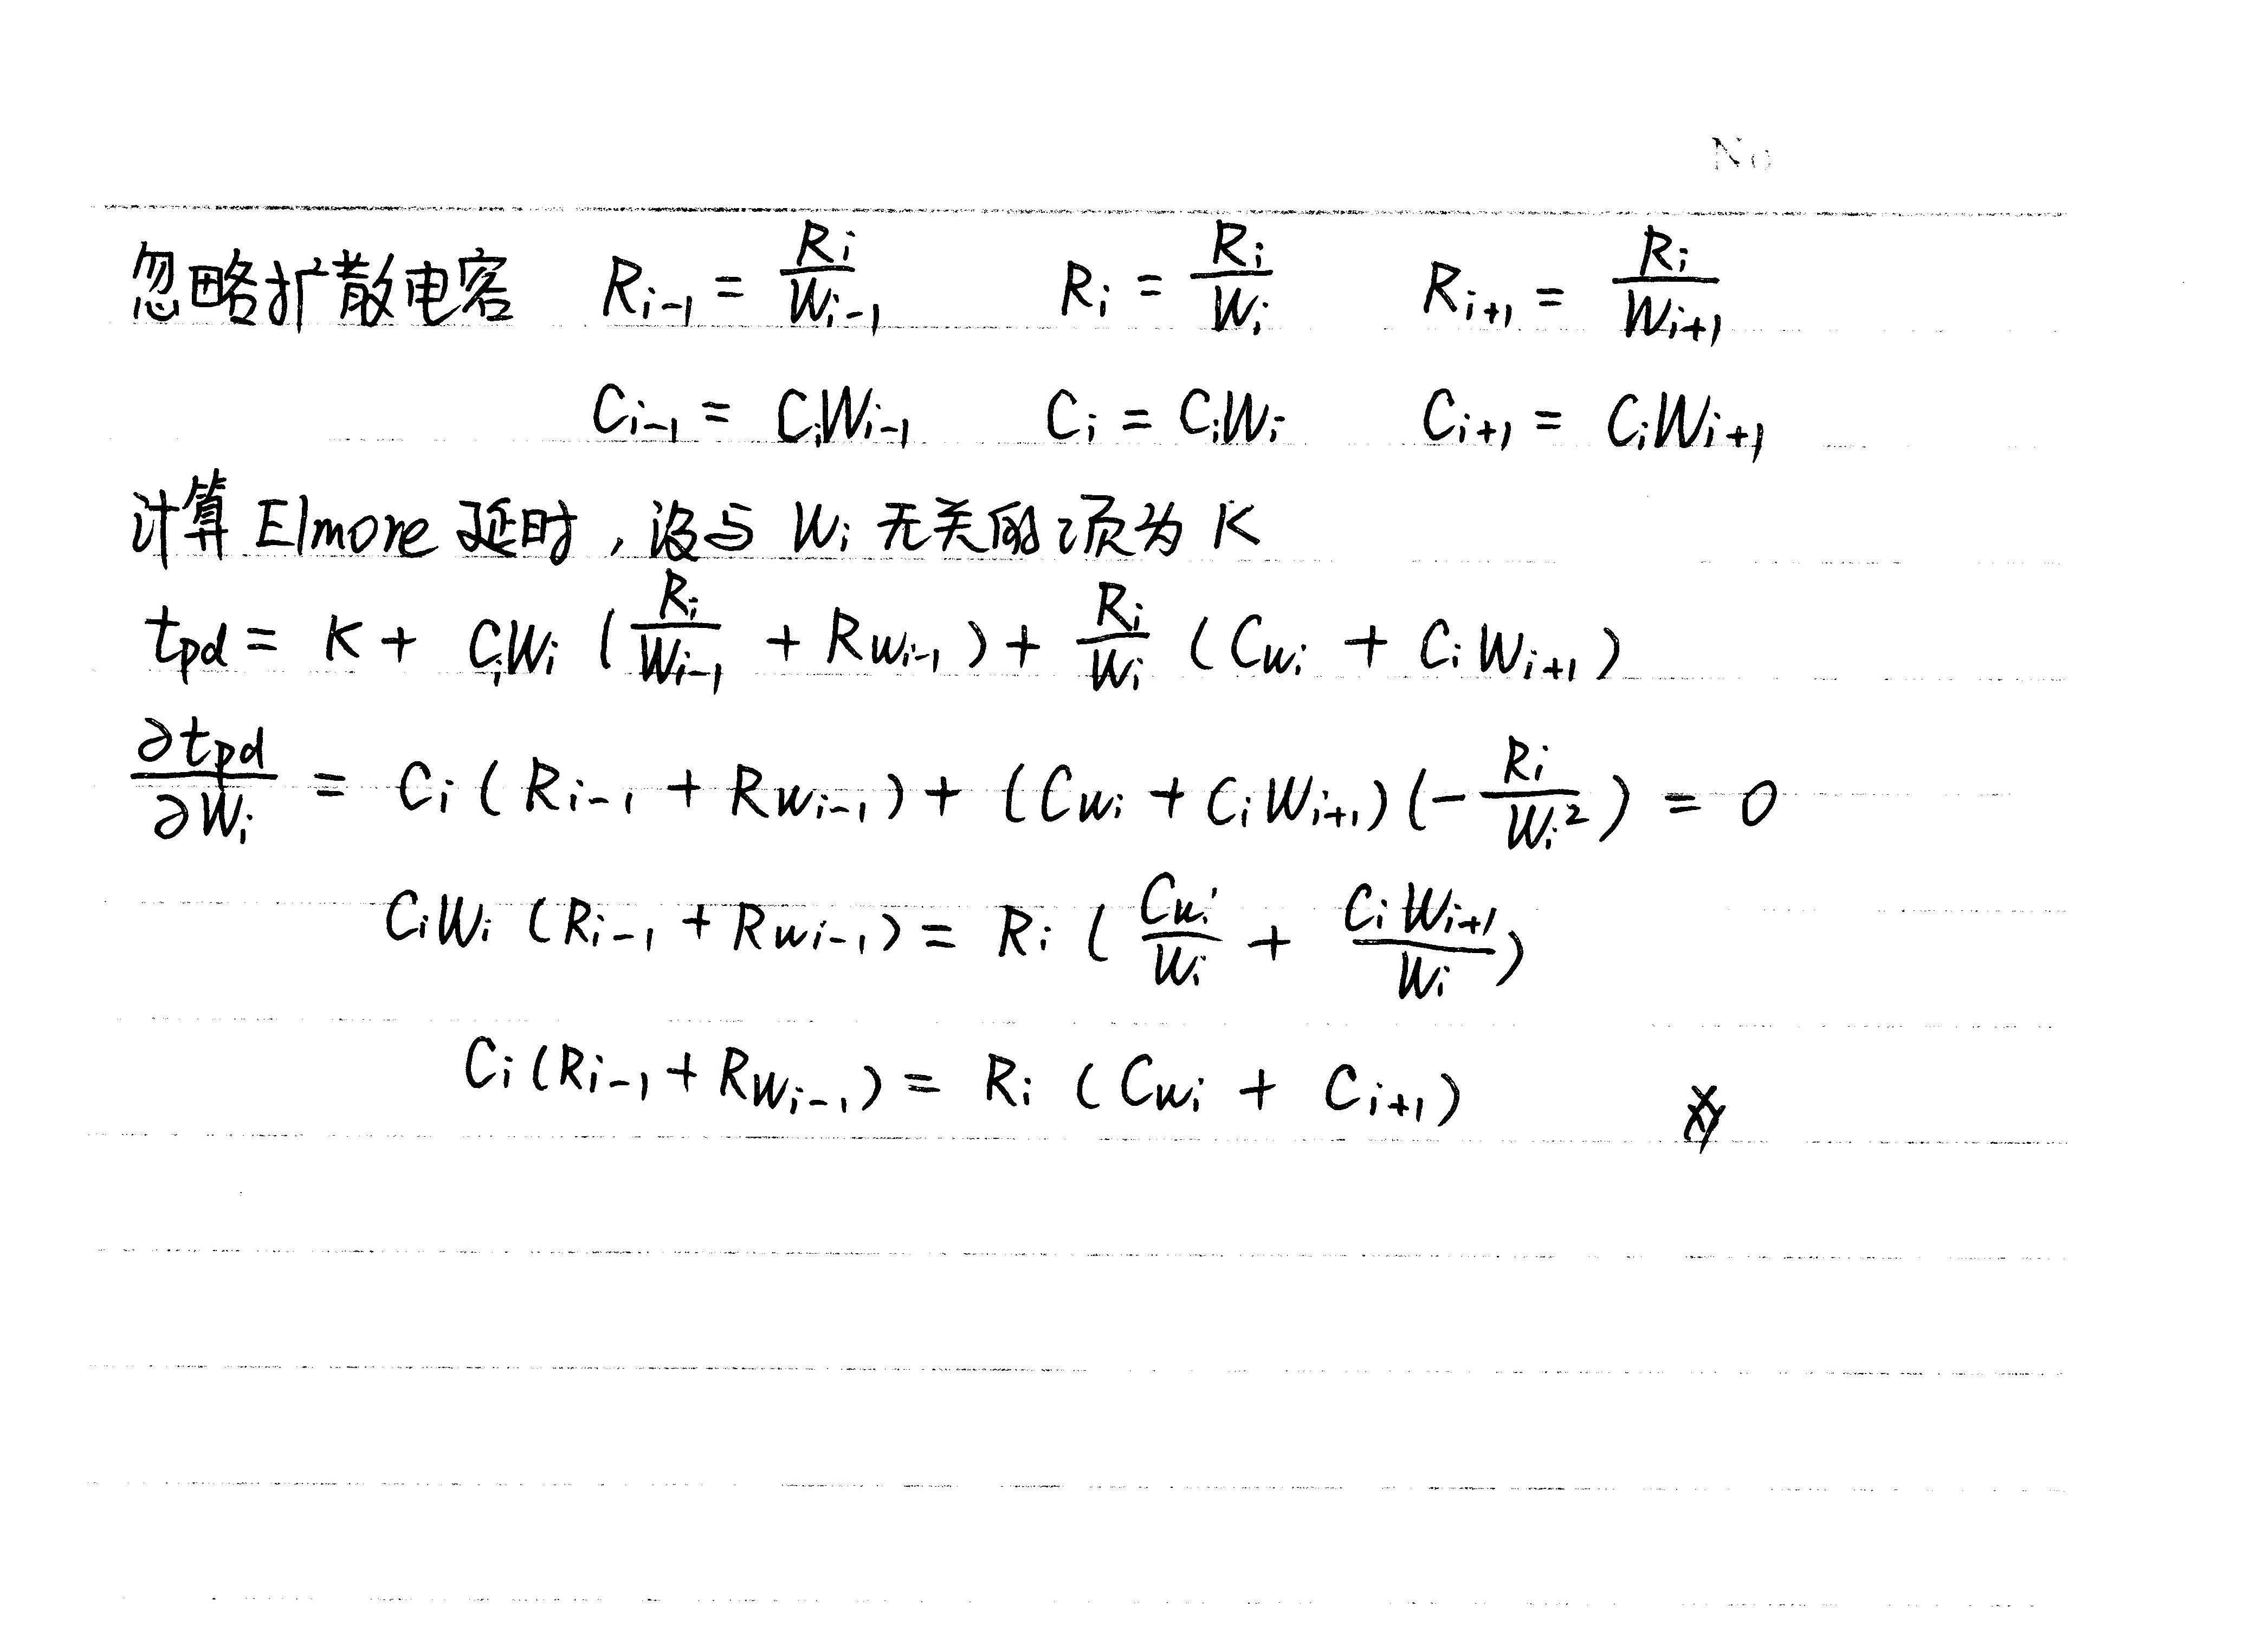 No
忽略扩散电容 R_{i-1} = \frac{R_i}{W_{i-1}} R_i = \frac{R_i}{W_i} R_{i+1} = \frac{R_i}{W_{i+1}}
C_{i-1} = C_i W_{i-1} C_i = C_i W_i C_{i+1} = C_i W_{i+1}
计算 Elmore 延时，设与 W_i 无关的项为 K
t_{pd} = K + C_i W_i (\frac{R_i}{W_{i-1}} + R_{w_{i-1}}) + \frac{R_i}{W_i} (C_{w_i} + C_i W_{i+1})
\frac{∂t_{pd}}{∂W_i} = C_i (R_{i-1} + R_{w_{i-1}}) + (C_{w_i} + C_i W_{i+1})(-\frac{R_i}{W_i^2}) = 0
C_i W_i (R_{i-1} + R_{w_{i-1}}) = R_i (\frac{C_{w_i}}{W_i} + \frac{C_i W_{i+1}}{W_i})
C_i (R_{i-1} + R_{W_{i-1}}) = R_i (C_{w_i} + C_{i+1})